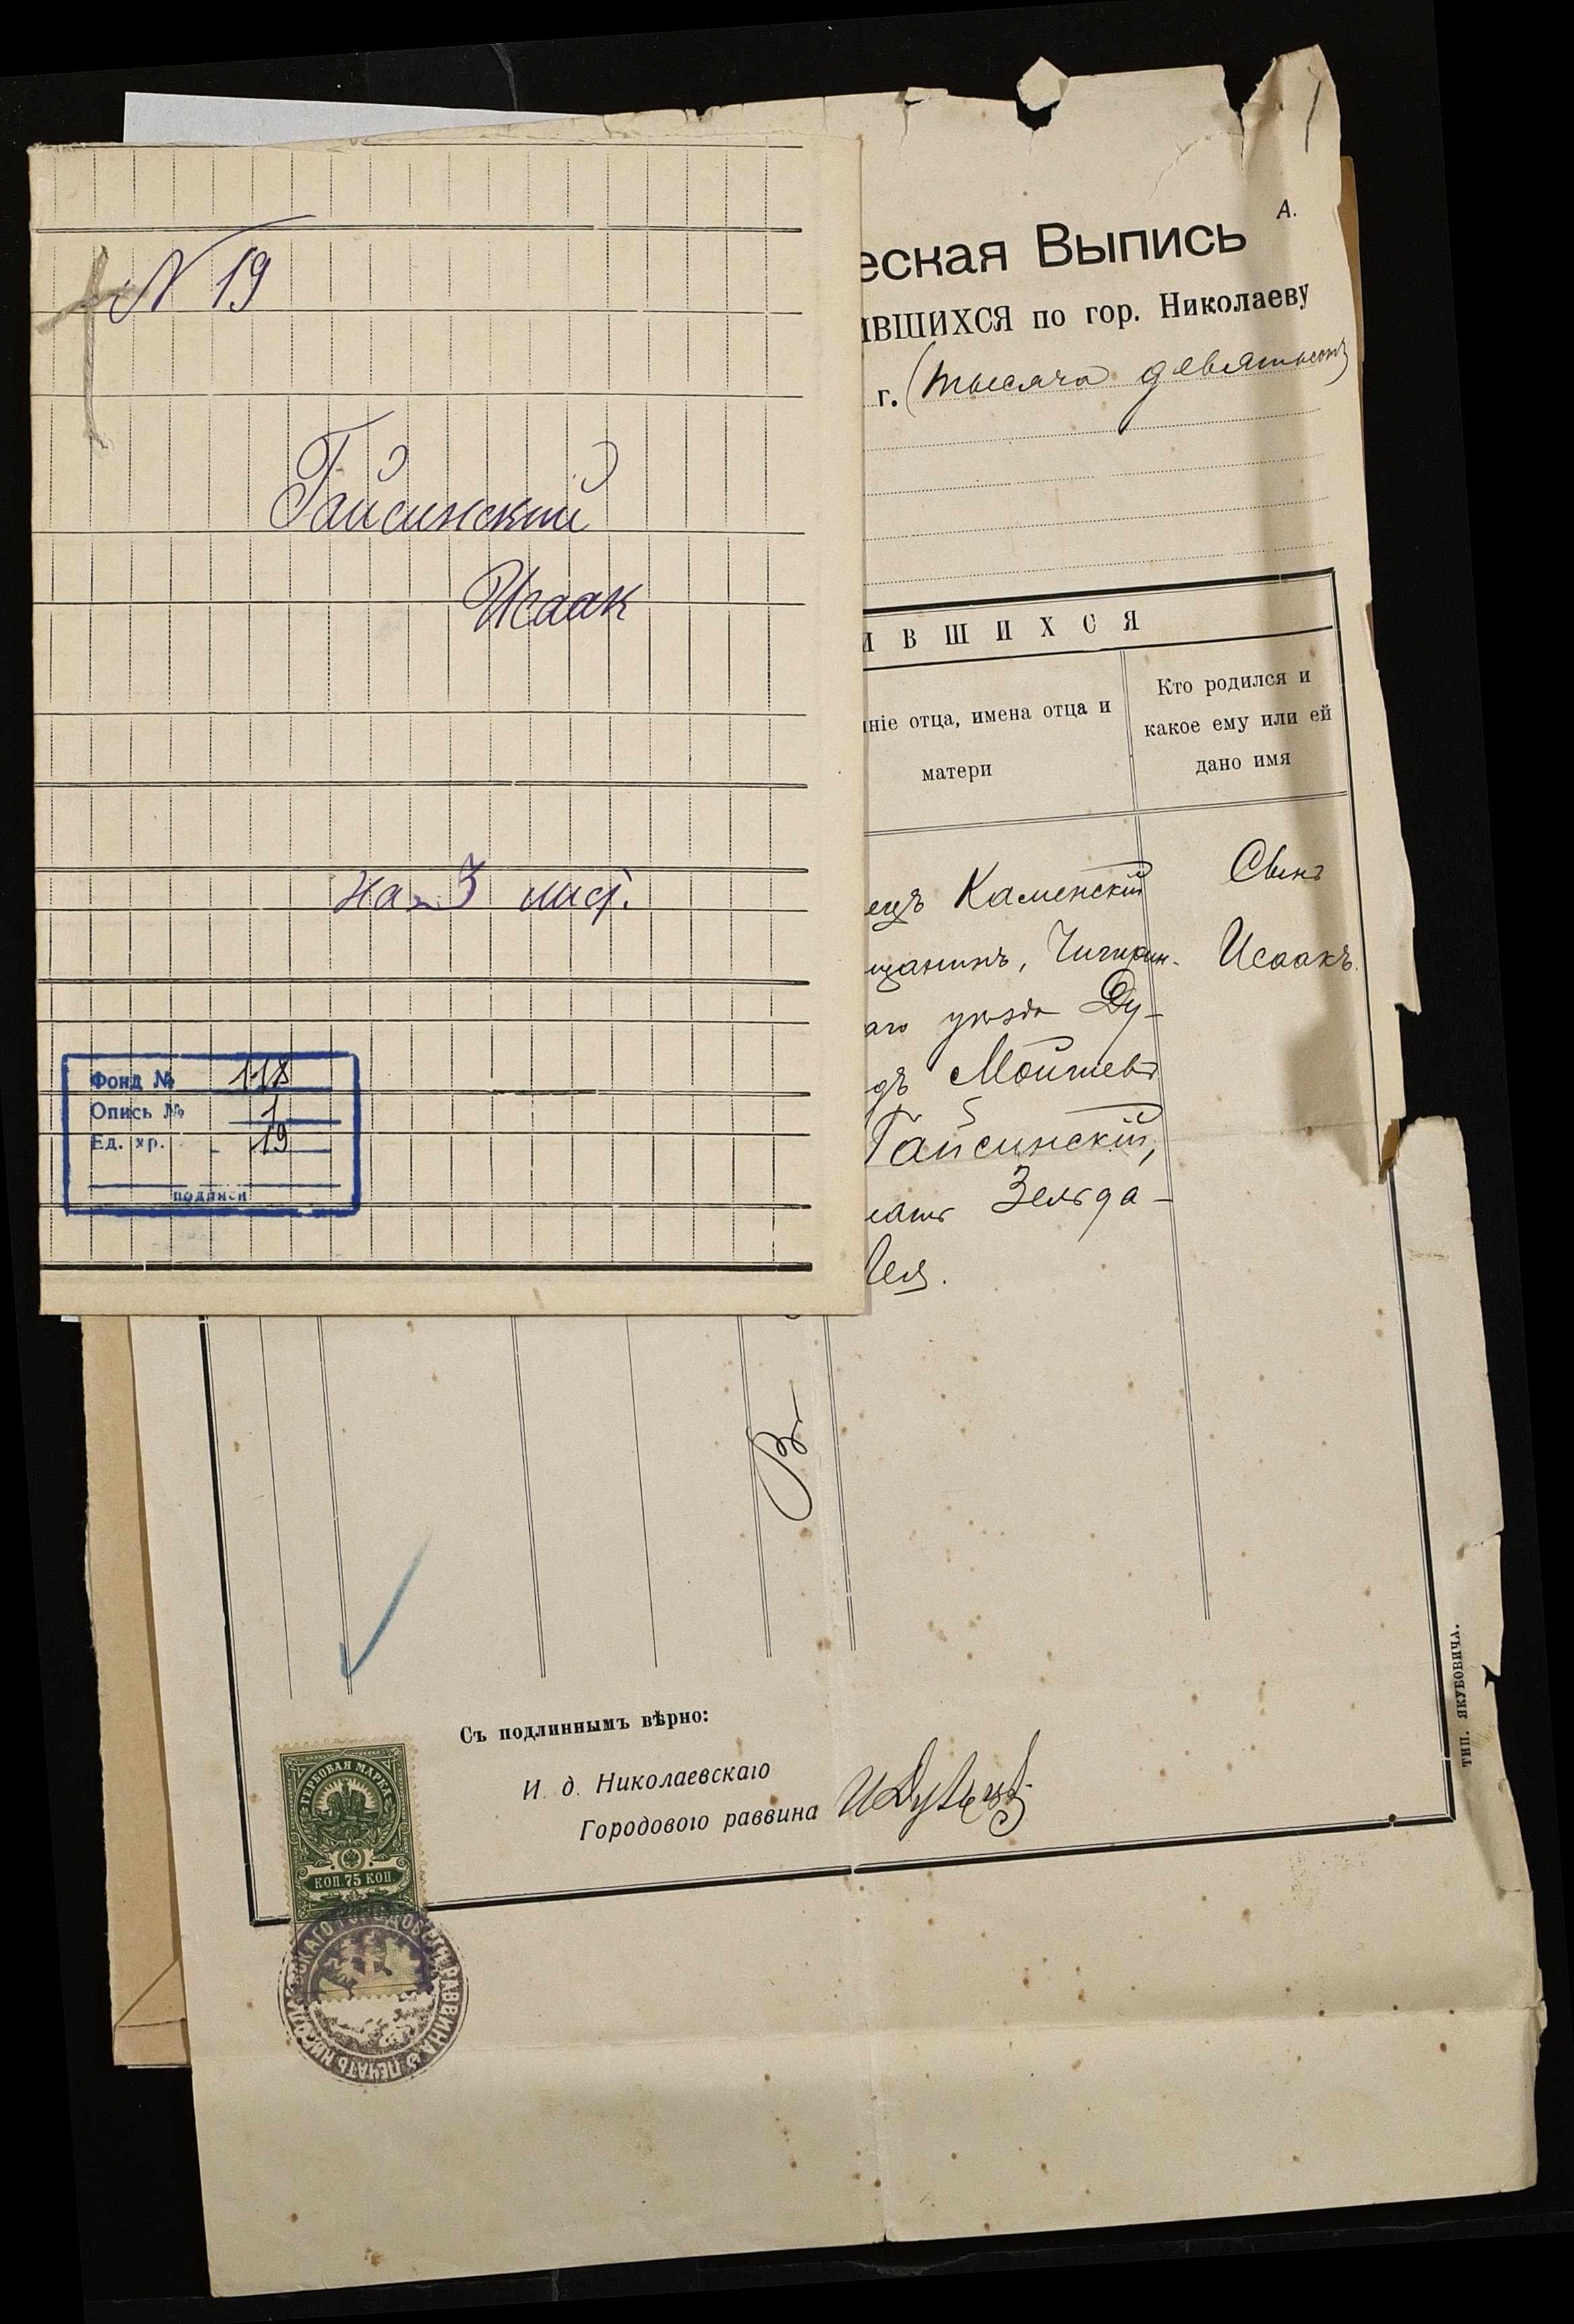 N 19
Гайсинский
Исаак
на 3 лист.
Фонд № 118
Опись № 1
Ед. хр. 19
подписи
А.
еская Выпись
ИВШИХСЯ по гор. Николаеву
г. (тысяча девятьсотъ
ИВШИХСЯ
ніе отца, имена отца и
матери
Кто родился и
какое ему или ей
дано имя
ецъ Каменскій
щанинъ, Чигирин-
аго уѣзда Ду-
дъ Мойшевъ
Гайсинскій,
мать Зельда-
Лея.
Сынъ
Исаакъ.
Съ подлиннымъ вѣрно:
И. д. Николаевскаго
Городового раввина
ГЕРБОВАЯ МАРКА
КОП. 75 КОП.
ПЕЧАТЬ НИКОЛАЕВСКАГО ГОРОДОВОГО РАВВИНА
ТИП. ЯКУБОВИЧА.